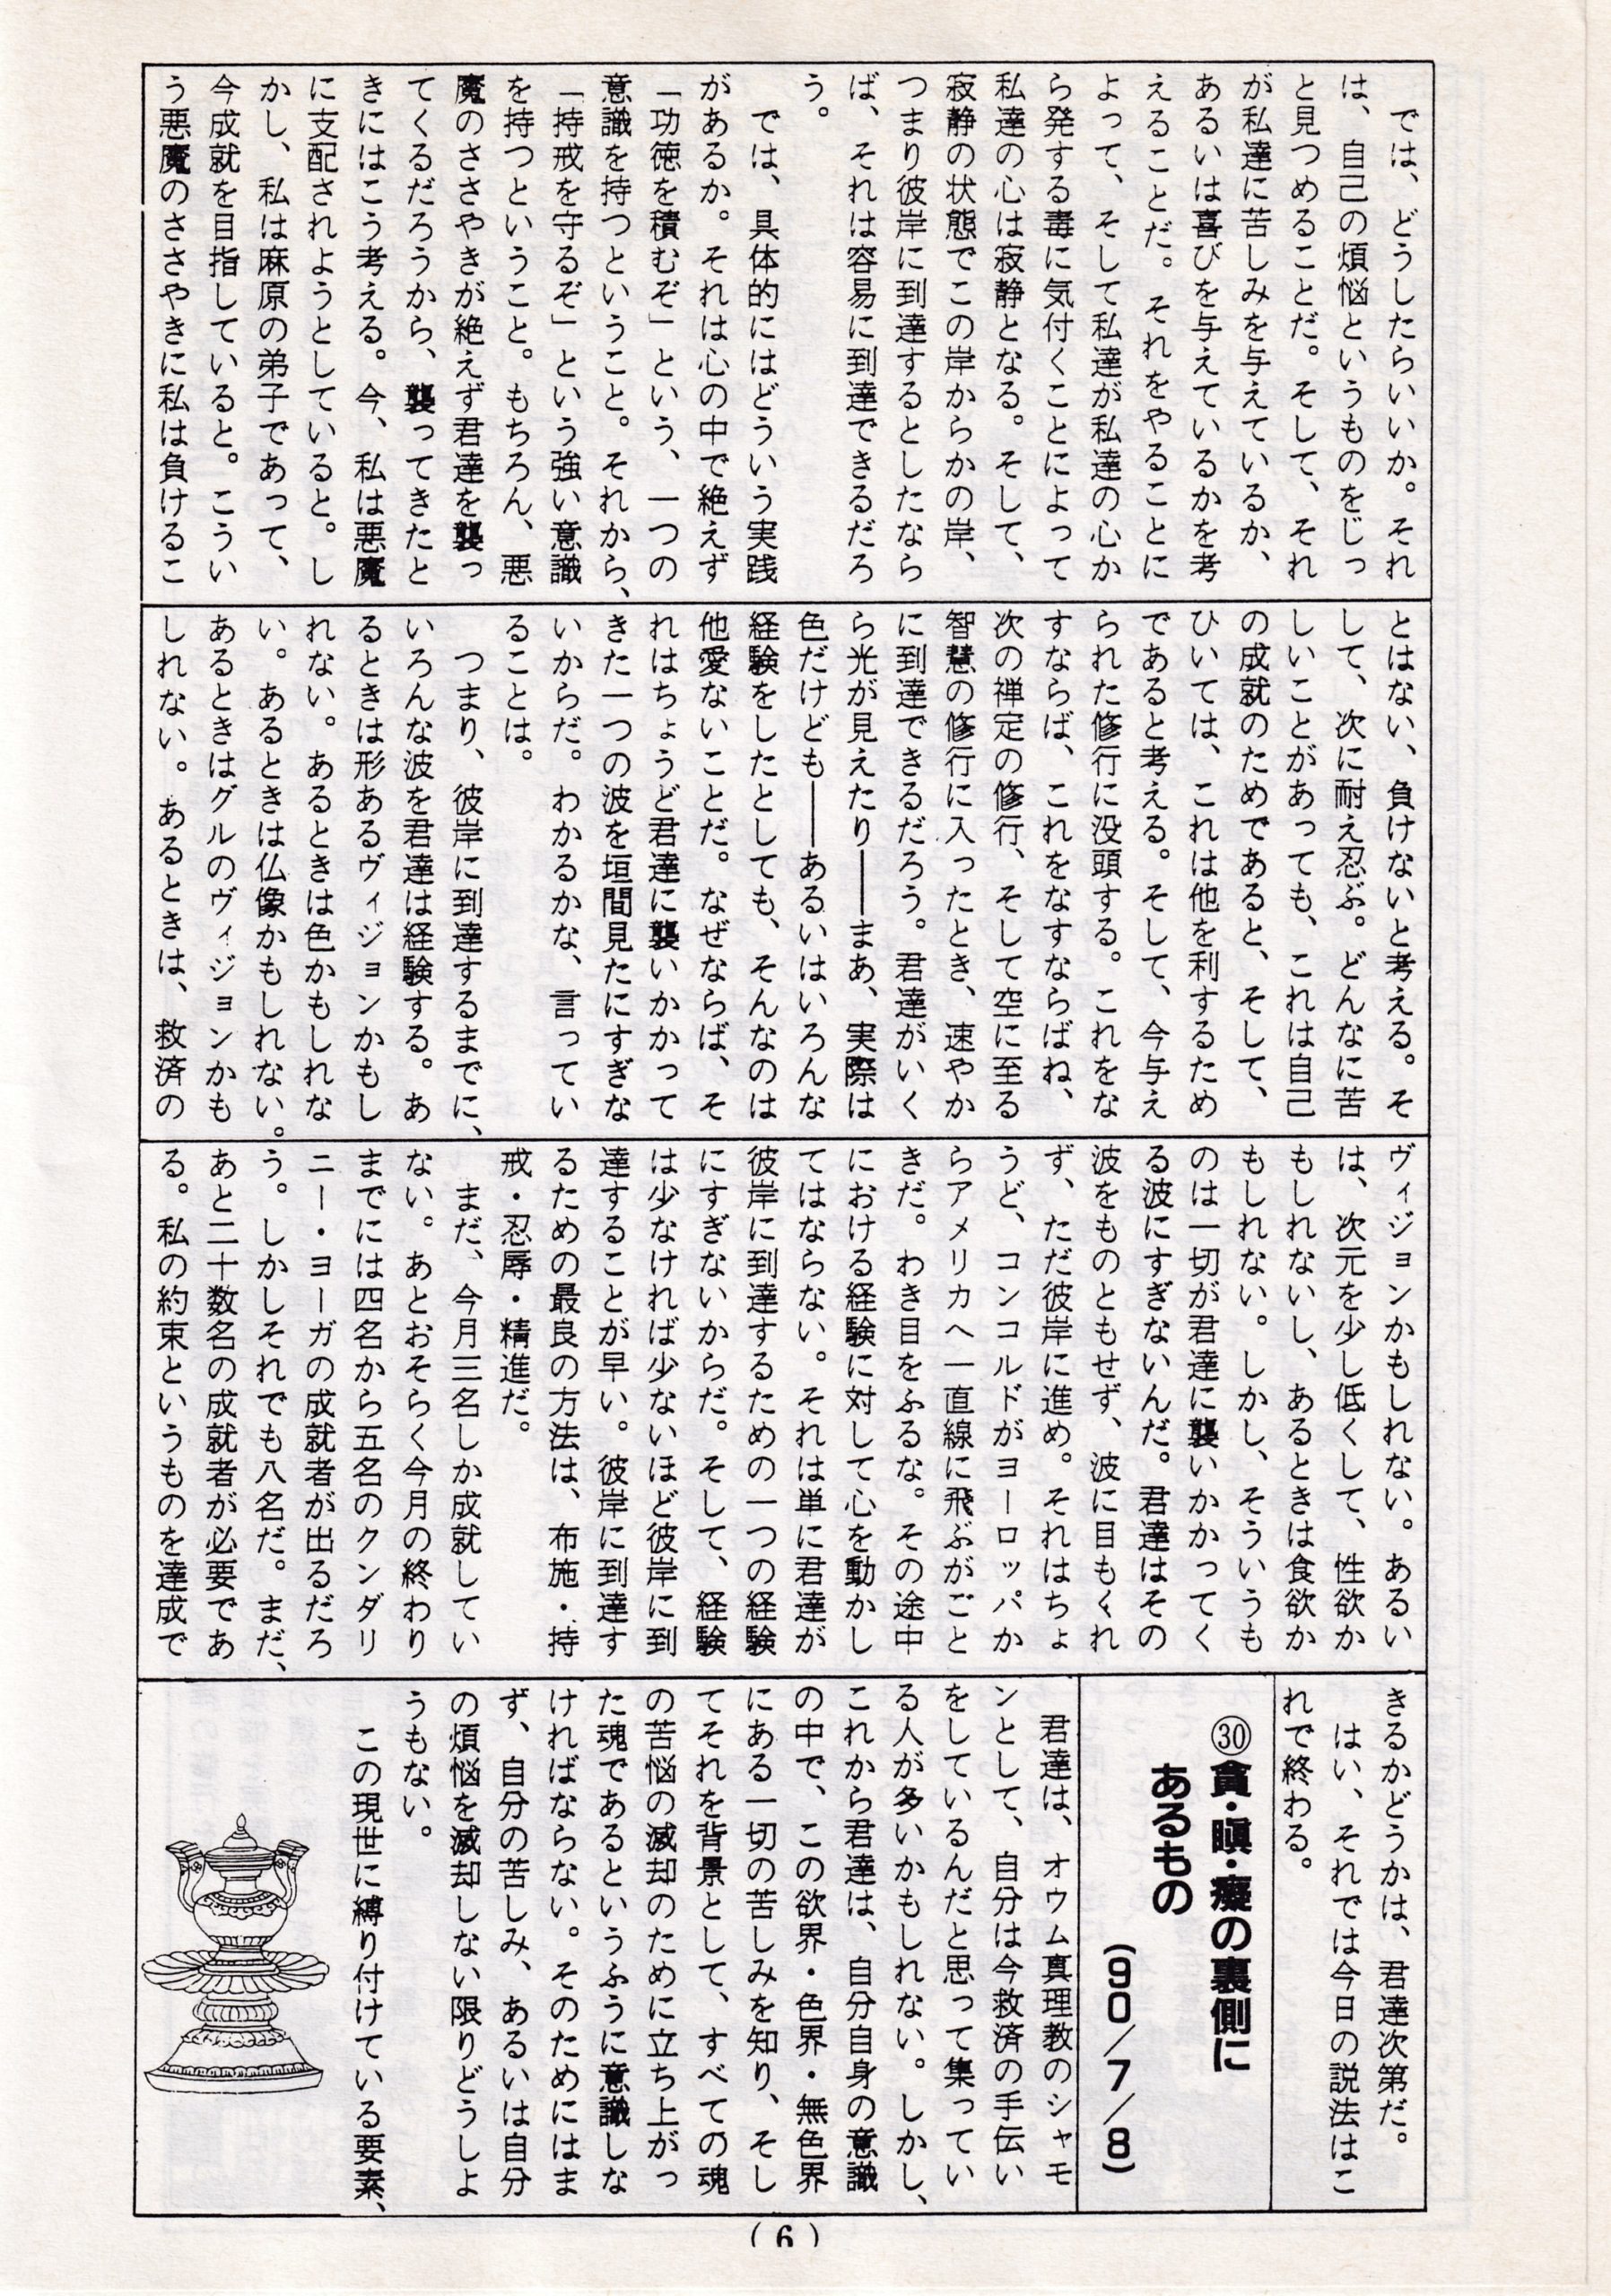 では、どうしたらいいか。それ
は、自己の煩悩というものをじっ
と見つめることだ。そして、それ
が私達に苦しみを与えているか、
あるいは喜びを与えているかを考
えることだ。それをやることに
よって、そして私達が私達の心か
ら発する毒に気付くことによって
私達の心は寂静となる。そして、
寂静の状態でこの岸からかの岸、
つまり彼岸に到達するとしたなら
ば、それは容易に到達できるだろ
う。
では、具体的にはどういう実践
があるか。それは心の中で絶えず
「功徳を積むぞ」という、一つの
意識を持つということ。それから、
「持戒を守るぞ」という強い意識
を持つということ。もちろん、悪
魔のささやきが絶えず君達を襲っ
てくるだろうから、襲ってきたと
きにはこう考える。今、私は悪魔
に支配されようとしていると。し
かし、私は麻原の弟子であって、
今成就を目指していると。こうい
う悪魔のささやきに私は負けるこ
とはない、負けないと考える。そ
して、次に耐え忍ぶ。どんなに苦
しいことがあっても、これは自己
の成就のためであると、そして、
ひいては、これは他を利するため
であると考える。そして、今与え
られた修行に没頭する。これをな
すならば、これをなすならばね、
次の禅定の修行、そして空に至る
智慧の修行に入ったとき、速やか
に到達できるだろう。君達がいく
ら光が見えたり――まあ、実際は
色だけども――あるいはいろんな
経験をしたとしても、そんなのは
他愛ないことだ。なぜならば、そ
れはちょうど君達に襲いかかって
きた一つの波を垣間見たにすぎな
いからだ。わかるかな、言ってい
ることは。
つまり、彼岸に到達するまでに、
いろんな波を君達は経験する。あ
るときは形あるヴィジョンかもし
れない。あるときは色かもしれな
い。あるときは仏像かもしれない。
あるときはグルのヴィジョンかも
しれない。あるときは、救済の
ヴィジョンかもしれない。あるい
は、次元を少し低くして、性欲か
もしれないし、あるときは食欲か
もしれない。しかし、そういうも
のは一切が君達に襲いかかってく
る波にすぎないんだ。君達はその
波をものともせず、波に目もくれ
ず、ただ彼岸に進め。それはちょ
うど、コンコルドがヨーロッパか
らアメリカへ一直線に飛ぶがごと
きだ。わき目をふるな。その途中
における経験に対して心を動かし
てはならない。それは単に君達が
彼岸に到達するための一つの経験
にすぎないからだ。そして、経験
は少なければ少ないほど彼岸に到
達することが早い。彼岸に到達す
るための最良の方法は、布施・持
戒・忍辱・精進だ。
まだ、今月三名しか成就してい
ない。あとおそらく今月の終わり
までには四名から五名のクンダリ
ニー・ヨーガの成就者が出るだろ
う。しかしそれでも八名だ。まだ、
あと二十数名の成就者が必要であ
る。私の約束というものを達成で
きるかどうかは、君達次第だ。
はい、それでは今日の説法はこ
れで終わる。
㉚貪・瞋・癡の裏側に
あるもの
(90/7/8)
君達は、オウム真理教のシャモ
ンとして、自分は今救済の手伝い
をしているんだと思って集ってい
る人が多いかもしれない。しかし、
これから君達は、自分自身の意識
の中で、この欲界・色界・無色界
にある一切の苦しみを知り、そし
てそれを背景として、すべての魂
の苦悩の滅却のために立ち上がっ
た魂であるというふうに意識しな
ければならない。そのためにはま
ず、自分の苦しみ、あるいは自分
の煩悩を滅却しない限りどうしよ
うもない。
この現世に縛り付けている要素、
(6)